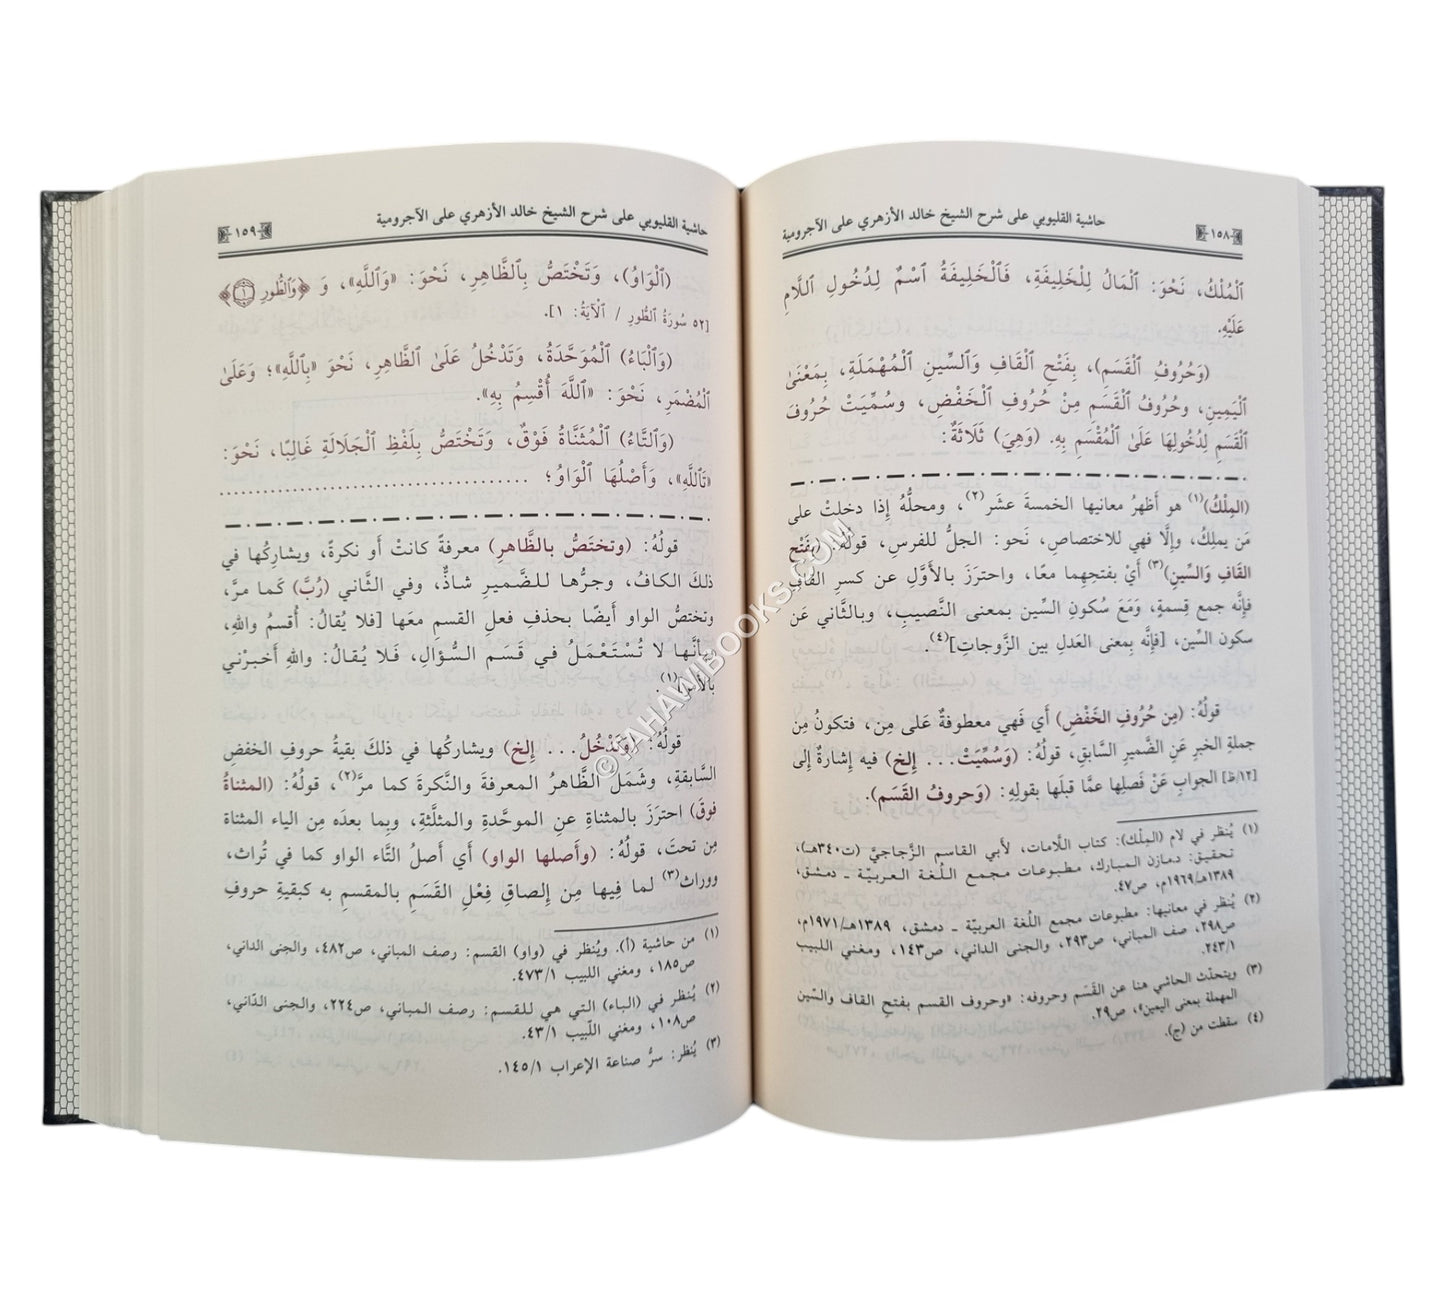 حاشية القليوبي على شرح الشيخ خالد الأزهري على الآجرومية
١٥٨
ٱلْمُلْكُ، نَحْوَ: ٱلْمَالُ لِلْخَلِيفَةِ، فَٱلْخَلِيفَةُ ٱسْمٌ لِدُخُولِ ٱللَّامِ
عَلَيْهِ.
(وَحُرُوفُ ٱلْقَسَمِ)، بِفَتْحِ ٱلْقَافِ وَٱلسِّينِ ٱلْمُهْمَلَةِ، بِمَعْنَىٰ
ٱلْيَمِينِ، وحُرُوفُ ٱلْقَسَمِ مِنْ حُرُوفِ ٱلْخَفْضِ، وسُمِّيَتْ حُرُوفَ
ٱلْقَسَمِ لِدُخُولِهَا عَلَىٰ ٱلْمُقْسَمِ بِهِ. (وَهِيَ) ثَلَاثَةٌ:
(المِلْكُ)(١) هو أَظهرُ معانيها الخمسةَ عشَر(٢)، ومحلُّهُ إِذا دخلتْ على
مَن يملِكُ، وإِلَّا فهي للاختصاصِ، نَحو: الجلُّ للفرسِ، قولُهُ: (بِفَتْحِ
القَافِ وَالسِّينِ)(٣) أَيْ بفتحِهِما معًا، واحترَزَ بالأَوَّلِ عن كسرِ القافِ
فإِنَّه جمع قِسمةٍ، وَمَعَ سُكونِ السِّين بمعنى النَّصيبِ، وبالثَّاني عَن
سكون السِّين، [فإِنَّه بِمعنى العدلِ بين الزَّوجاتِ](٤).
قولُهُ: (مِن حُرُوفِ الخَفْضِ) أَي فَهي معطوفةٌ عَلى مِن، فتكونُ مِن
جملةِ الخبرِ عَنِ الضَّميرِ السَّابقِ، قولُهُ: (وَسُمِّيَتْ... إلخ) فيه إِشارةٌ إِلى
[١٢/ظ] الجوابِ عَنْ فَصلِها عمَّا قبلَها بقولِهِ: (وَحروفُ القَسَم).
(١) يُنظر في لام (المِلْك): كتاب اللَّامات، لأبي القاسم الزَّجاجيَّ (ت٣٤٠هـ)،
تحقيق: دمازن المبارك، مطبوعات مجمع اللُّغة العربيّة ـ دمشق،
١٣٨٩هـ/١٩٦٩م، ص٤٧.
(٢) يُنظر في معانيها: مطبوعات مجمع اللُّغة العربيّة ـ دمشق، ١٣٨٩هـ/١٩٧١م،
ص٢٩٨، صف المباني، ص٢٩٣، والجنى الداني، ص١٤٣، ومغني اللبيب
٢٤٣/١.
(٣) ويتحدّث الحاشي هنا عن القَسَم وحروفه: «وحروف القسم بفتح القاف والسّين
المهملة بمعنى اليمين»، ص٢٩.
(٤) سقطت من (ج).
حاشية القليوبي على شرح الشيخ خالد الأزهري على الآجرومية
١٥٩
(ٱلْوَاوُ)، وَتَخْتَصُّ بِٱلظَّاهِرِ، نَحْوَ: «وَٱللَّهِ»، وَ ﴿وَٱلطُّورِ ۝١﴾
[٥٢ سُورَةُ ٱلطُّورِ / ٱلْآيَةُ: ١].
(وَٱلْبَاءُ) ٱلْمُوَحَّدَةُ، وَتَدْخُلُ عَلَىٰ ٱلظَّاهِرِ، نَحْوَ «بِٱللَّهِ»؛ وَعَلَىٰ
ٱلْمُضْمَرِ، نَحْوَ: «ٱللَّهَ أُقْسِمُ بِهِ».
(وَٱلتَّاءُ) ٱلْمُثَنَّاةُ فَوْقُ، وَتَخْتَصُّ بِلَفْظِ ٱلْجَلَالَةِ غَالِبًا، نَحْوَ:
«تَٱللَّهِ»، وَأَصْلُهَا ٱلْوَاوُ؛ ......................................
قولُهُ: (وتختَصُّ بالظَّاهرِ) معرفةً كانتْ أَو نكرةً، ويشاركُها في
ذلكَ الكافُ، وجرُّها للضَّميرِ شاذٌّ، وفي الثَّاني (رُبَّ) كَما مرَّ،
وتختصُّ الواو أَيضًا بحذفِ فعلِ القسمِ معَها [فلا يُقالُ: أُقسمُ واللهِ،
وبأنَّها لا تُسْتَعْمَلُ في قسَمِ السُّؤالِ، فَلا يُقالُ: واللهِ أَخبرْني
بالأمرِ](١).
قولُهُ: (وَتَدْخُلُ... إلخ) ويشاركُها في ذلكَ بقيةُ حروفِ الخفضِ
السَّابقةِ، وشَمَلَ الظَّاهرُ المعرفةَ والنَّكرةَ كما مرَّ(٢)، قولُهُ: (المثناةُ
فوق) احترَزَ بالمثناةِ عنِ الموحَّدةِ والمثلَّثةِ، وبِما بعدَه مِن الياء المثناة
مِن تحت، قولُهُ: (وأَصلها الواو) أَي أَصلُ التَّاء الواو كما في تُراث،
ووراث(٣) لما فِيها مِن إِلصاقِ فِعْلِ القَسَمِ بالمقسمِ به كبقيةِ حروفِ
(١) من حاشية (أ). ويُنظر في (واو) القسم: رصف المباني، ص٤٨٢، والجنى الداني،
ص١٨٥، ومغني اللبيب ٤٧٣/١.
(٢) يُنظر في (الباء) التي هي للقسم: رصف المباني، ص٢٢٤، والجنى الدّاني،
ص١٠٨، ومغني اللّبيب ٤٣/١.
(٣) يُنظر: سرُّ صناعة الإعراب ١٤٥/١.
© TAHAWIBOOKS.COM